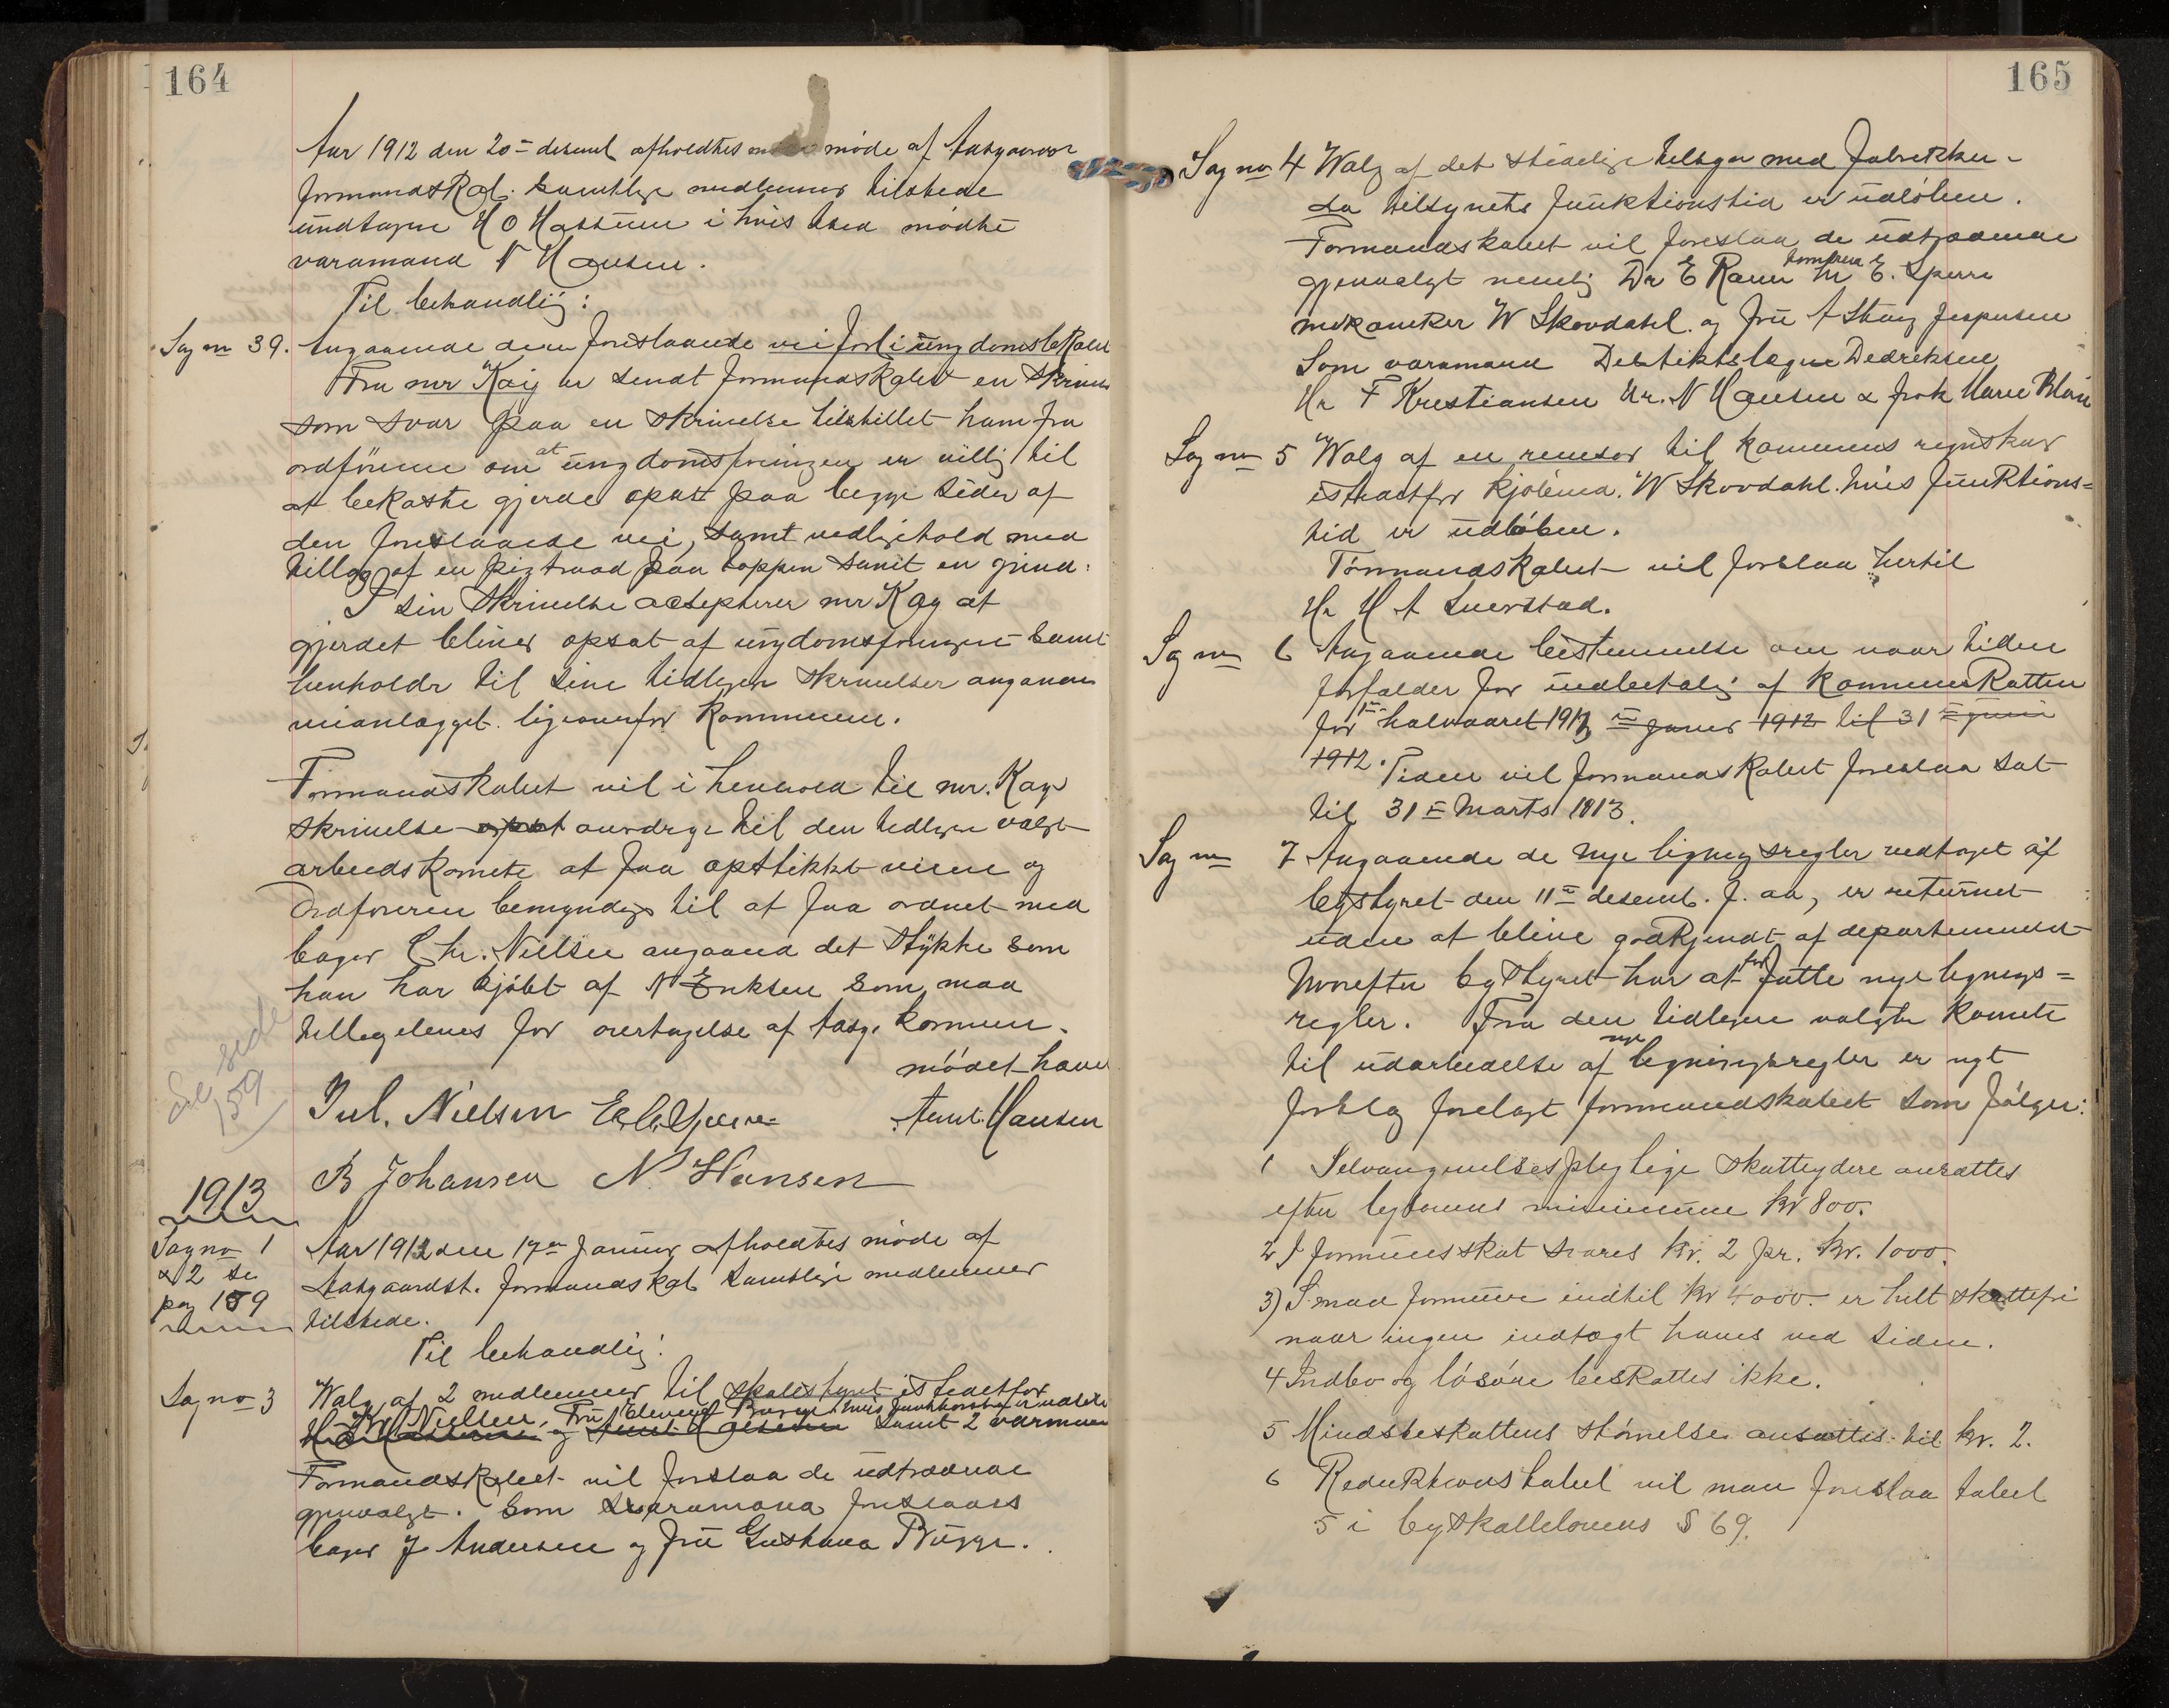 164
Aar 1912 den 20 desemb afholdtes møde af Aasgaards
formandskab. Samtlige medlemmer tilstede
undtagen H O Hassum i hvis sted mødte
varamand N Hansen.
Til behandlig:
Sag no 39. Angaaende den foreslaaede vei forbi ungdomslokalet
Fra mr Kay er sendt formandskabet en skrivelse
som svar paa en skrivelse tilstillet ham fra
ordføreren om at ungdomsforeningen er villig til
at bekoste gjerde opsat paa begge sider af
den foreslaaede vei, samt vedligehold med
tillæg af en pigtraad paa toppen samt en grind.
I sin skrivelse acsepterer mr Kay at
gjerdet bliver opsat af ungdomsforeningen samt
henholdr til sine tidligere skrivelser angaaende
veianlægget ligeoverfor kommunen.
Formandskabet vil i henhold til mr. Kays
skrivelse opsat anvdrge til den tidligere valgt
arbeidskomite at faa opstikket veien og
Ordføreren bemyndiges til at faa ordnet med
bager Chr. Nielsen angaaend det stykke som
han har kjøbt af N Eriksen som maa
tillegeleves for overtagelse af Aasg. kommune.
mødet hævet
Se side
159
Jul. Nielsen Amt. Hansen
B Johansen N. Hansen
1913
Sag no 1
& 2 se
pag 159
Aar 1913 den 17de Januar afholdtes møde af
Aasgaardst. formandskab samtlige medlemmer
tilstede.
Til behandlig:
Sag no 3
Walg af 2 medlemmer til skolestyret istedetfor
Kr Nielsen, Fru Bugge hvis funktionstid er udløbet
H O Hassum og Amt. Hansen samt 2 varamænd
Formandskabet vil forslaa de udtrædende
gjenvalgt. Som varamænd foreslaaes
bager J Andersen og fru Gustava Bugge.
165
Sag no 4 Walg af det stedlige tilsyn med fabrikker
da tilsynets funktionstid er udløben.
Formandskabet vil foreslaa de udtrædende
gjenvalgt nemlig Dr E Raner jomfru E. Sperre
mekaniker W Skovdahl og fru A Stang Jespersen
Som varamænd Distriktslæge Dedreksen
Hr F Kristiansen Hr. N Hansen & frøk Marie Blom
Sag no 5 Walg af en revisor til kommunens regnskaber
istedetfor kjøbmd. W Skovdahl. hvis funktions=
tid er udløben.
Formandskabet vil forslaa hertil
Hr H A Suerstad.
Sag no 6 Angaaende bestemmelse om naar tiden
forfalder for indbetalig af kommuneskatten
for 1ste halvaaret 1913 Januar 1912 til 31 juni
1912. Tiden vil formandskabet foreslaa sat
til 31te Marts 1913.
Sag no 7 Angaaende de nye ligningsregler vedtaget af
bystyret den 11te desemb. f. aa, er returnert
uden at blive godkjendt af departementet
hvorefter bystyret har at fatte nye lignings=
regler. Fra den tidligere valgte komite
til udarbeidelse af nye ligningsregler er nyt
forslag forelagt formandskabet som følger:
1 Selvangivelsespligtige skatteydere ansættes
efter bylovens minimum Kr 800.
2 I formuesskat svares Kr. 2 pr. Kr. 1000.
3) Smaa formuer indtil Kr 4000. er helt skattefri
naar ingen indtægt haves ved siden.
4 Indbo og løsøre beskattes ikke.
5 Mindsteskattens størrelse ansættes til Kr. 2.
6 Reduktionstabel vil man foreslaa tabel
5 i byskattelovens § 69.